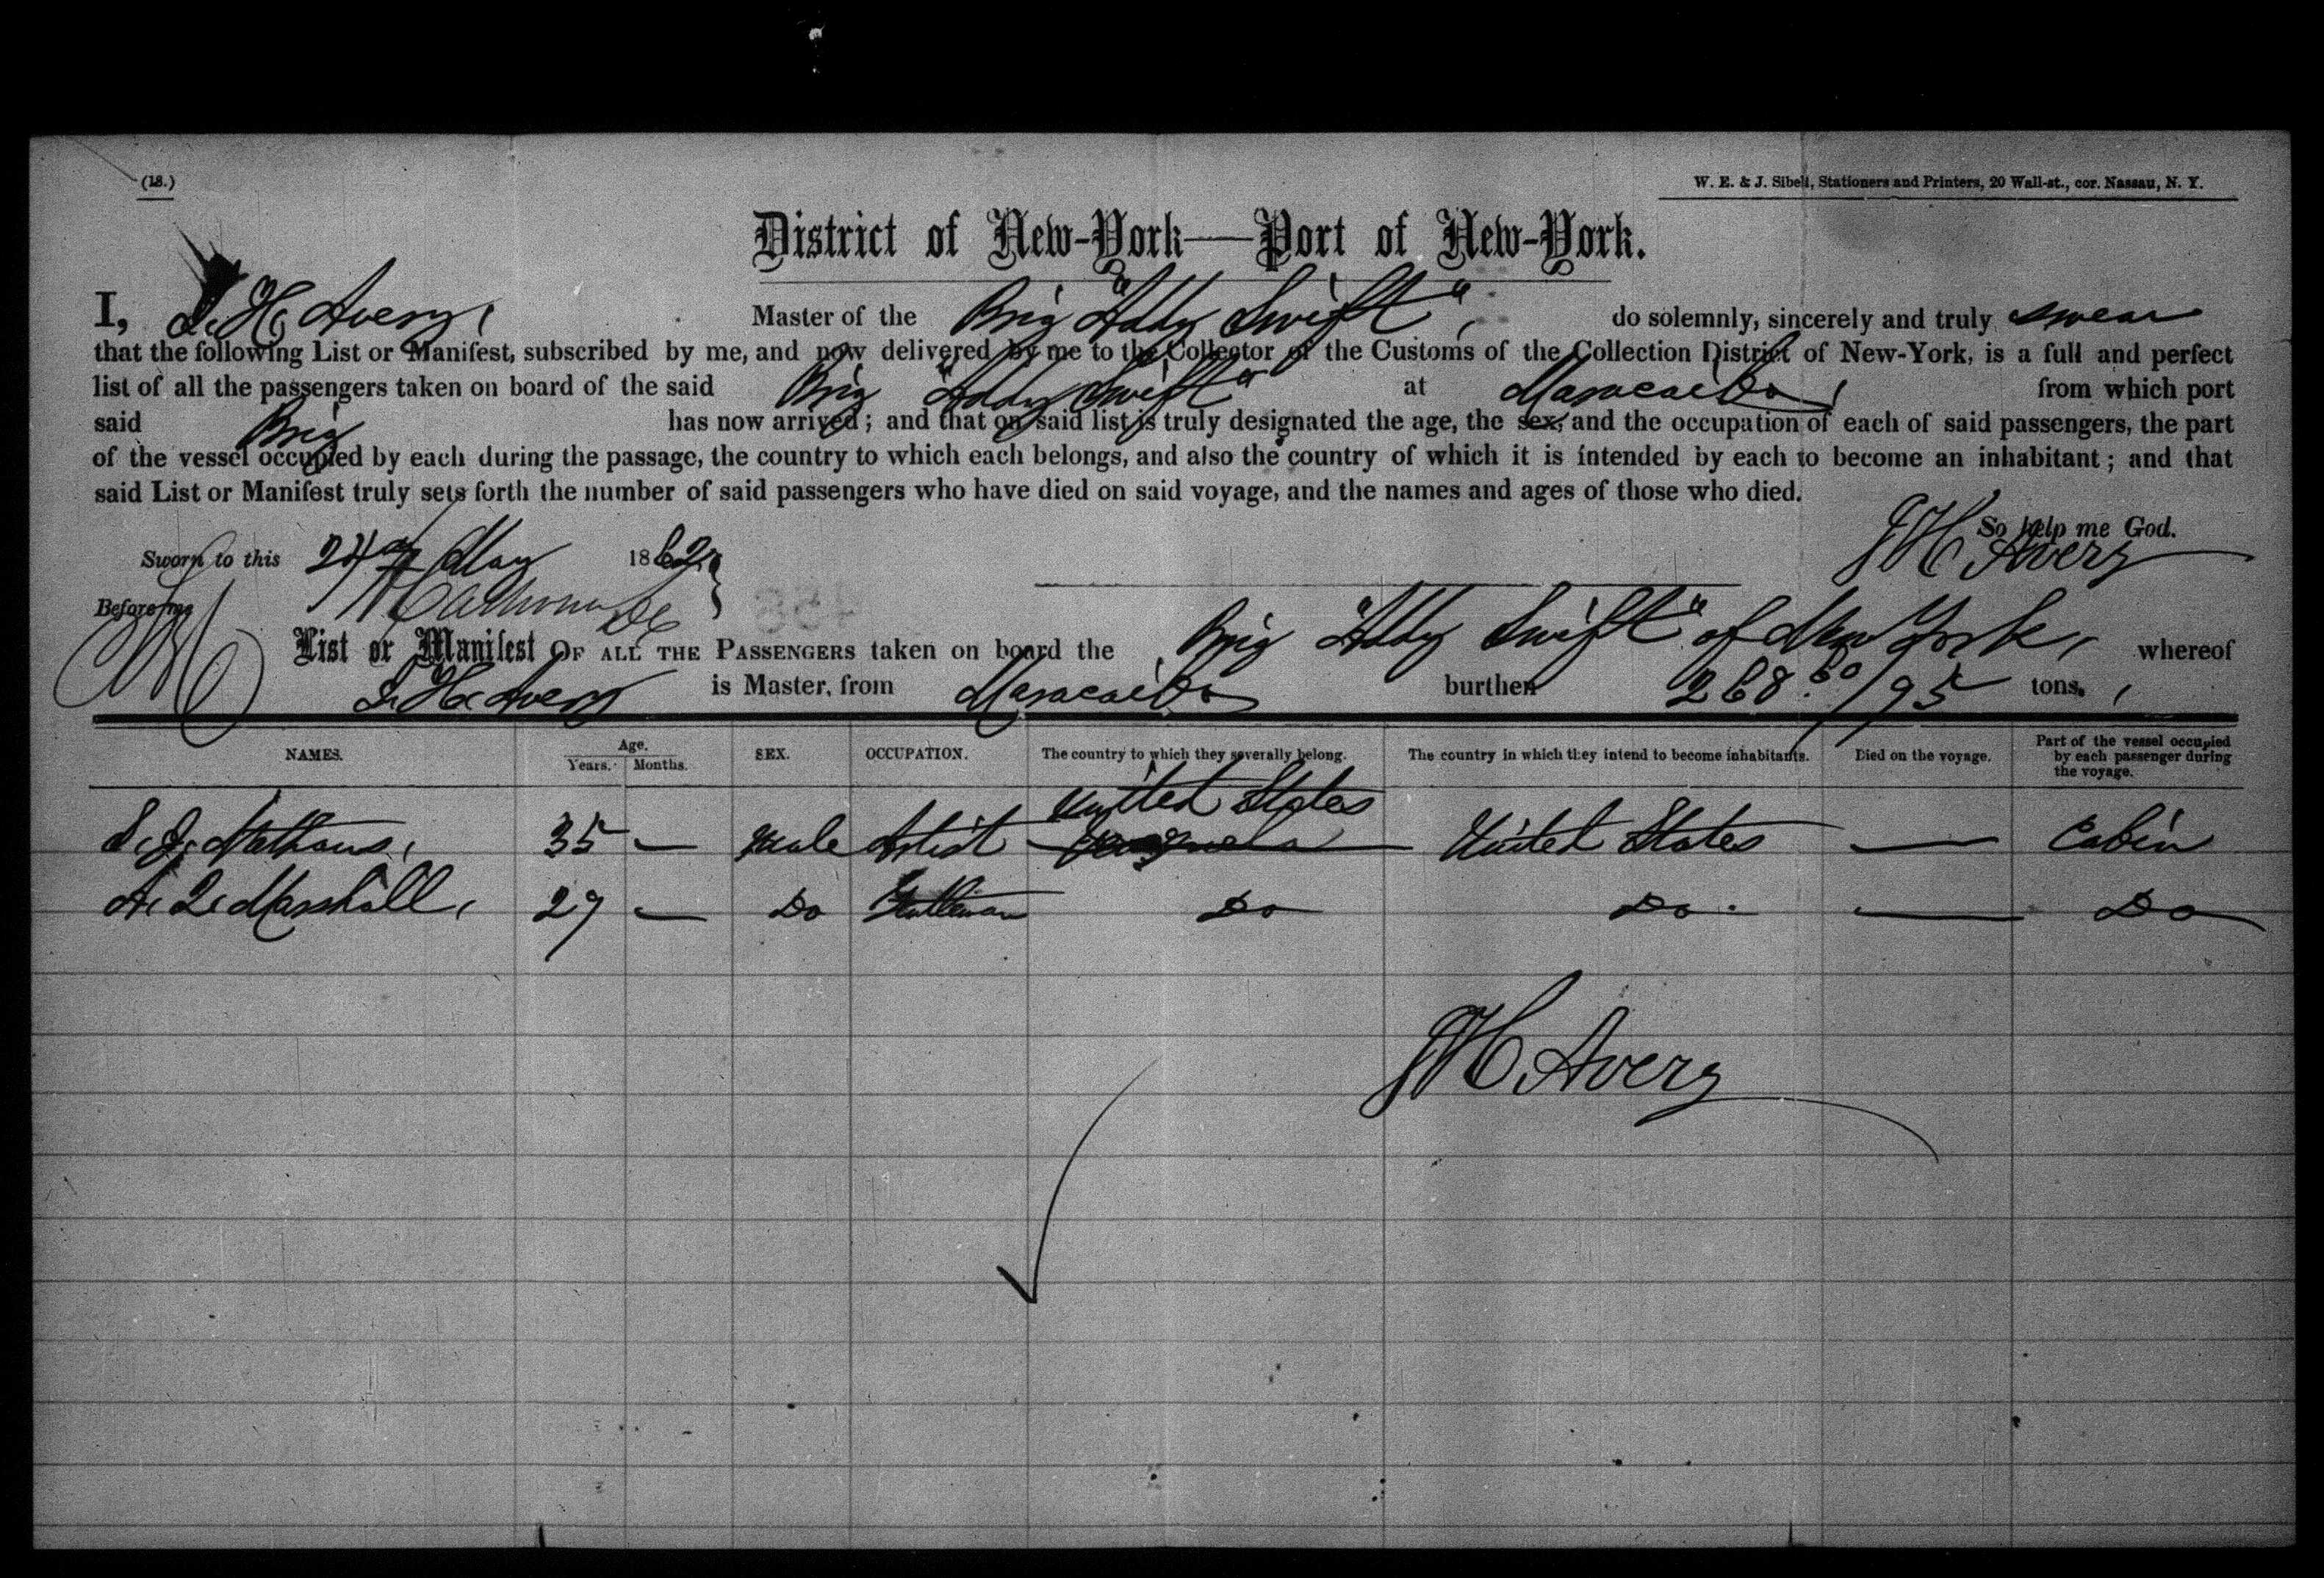 (18.)
W. E. & J. Sibell, Stationers and Printers, 20 Wall-st., cor. Nassau, N. Y.
District of New-York—Port of New-York.
I, J. H. Avery, Master of the Brig "Addy Swift", do solemnly, sincerely and truly swear
that the following List or Manifest, subscribed by me, and now delivered by me to the Collector of the Customs of the Collection District of New-York, is a full and perfect
list of all the passengers taken on board of the said Brig "Addy Swift" at Maracaibo, from which port
said Brig has now arrived; and that on said list is truly designated the age, the sex, and the occupation of each of said passengers, the part
of the vessel occupied by each during the passage, the country to which each belongs, and also the country of which it is intended by each to become an inhabitant; and that
said List or Manifest truly sets forth the number of said passengers who have died on said voyage, and the names and ages of those who died.
So help me God.
Sworn to this 24 May 1862
J H Avery
Before me
List or Manifest OF ALL THE PASSENGERS taken on board the Brig "Addy Swift" of New York, whereof
J. H. Avery is Master, from Maracaibo burthen 268 60/95 tons.
NAMES. Age. Years. Months. SEX. OCCUPATION. The country to which they severally belong. The country in which they intend to become inhabitants. Died on the voyage. Part of the vessel occupied by each passenger during the voyage.
United States
35 — Male Artist Venezuela United States — Cabin
A. L. Marshall, 29 — Do Gentleman Do Do. — Do
J H Avery